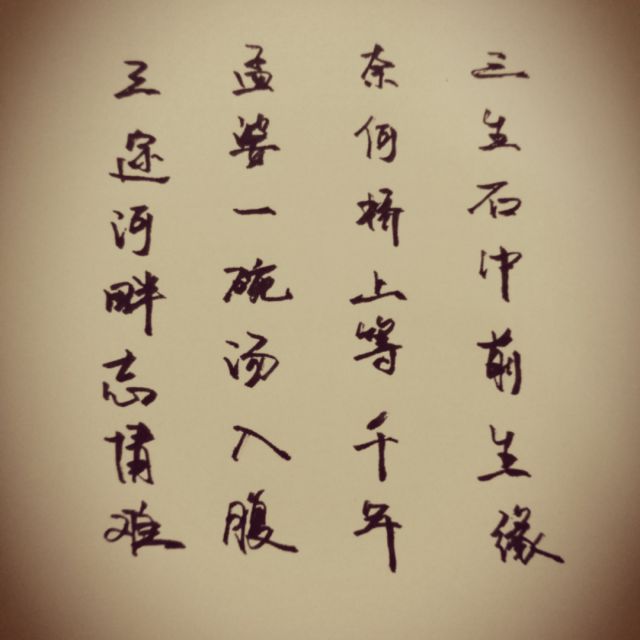 三生石中前生缘
奈何桥上等千年
孟婆一碗汤入腹
三途河畔忘情难